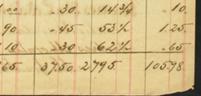 .30 14 3/4 .10
90 .45 53 1/2 1.25
10 .30 62 1/2 .65
65 37.50 2795 10598